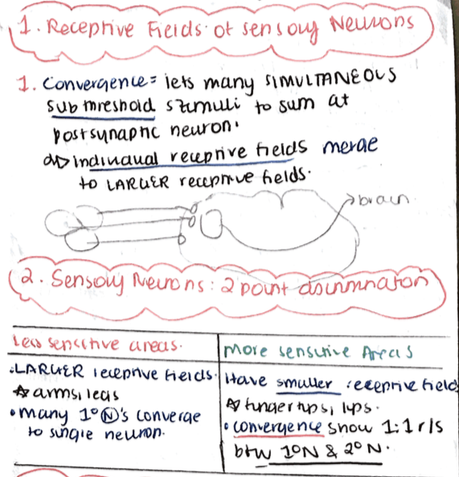 1. Receptive Fields of sensory Neurons
1. Convergence = lets many SIMULTANEOUS
subthreshold stimuli to sum at
postsynaptic neuron.
individual receptive fields merge
to LARGER receptive fields.
brain
2. Sensory Neurons: 2 point discrimination
Less sensitive areas.
• LARGER receptive fields.
☆ arms, legs
• many 1° N's converge
to single neuron.
More sensitive Areas
Have smaller receptive field
☆ fingertips, lips.
• convergence show 1:1 r/s
btw 1°N & 2°N.